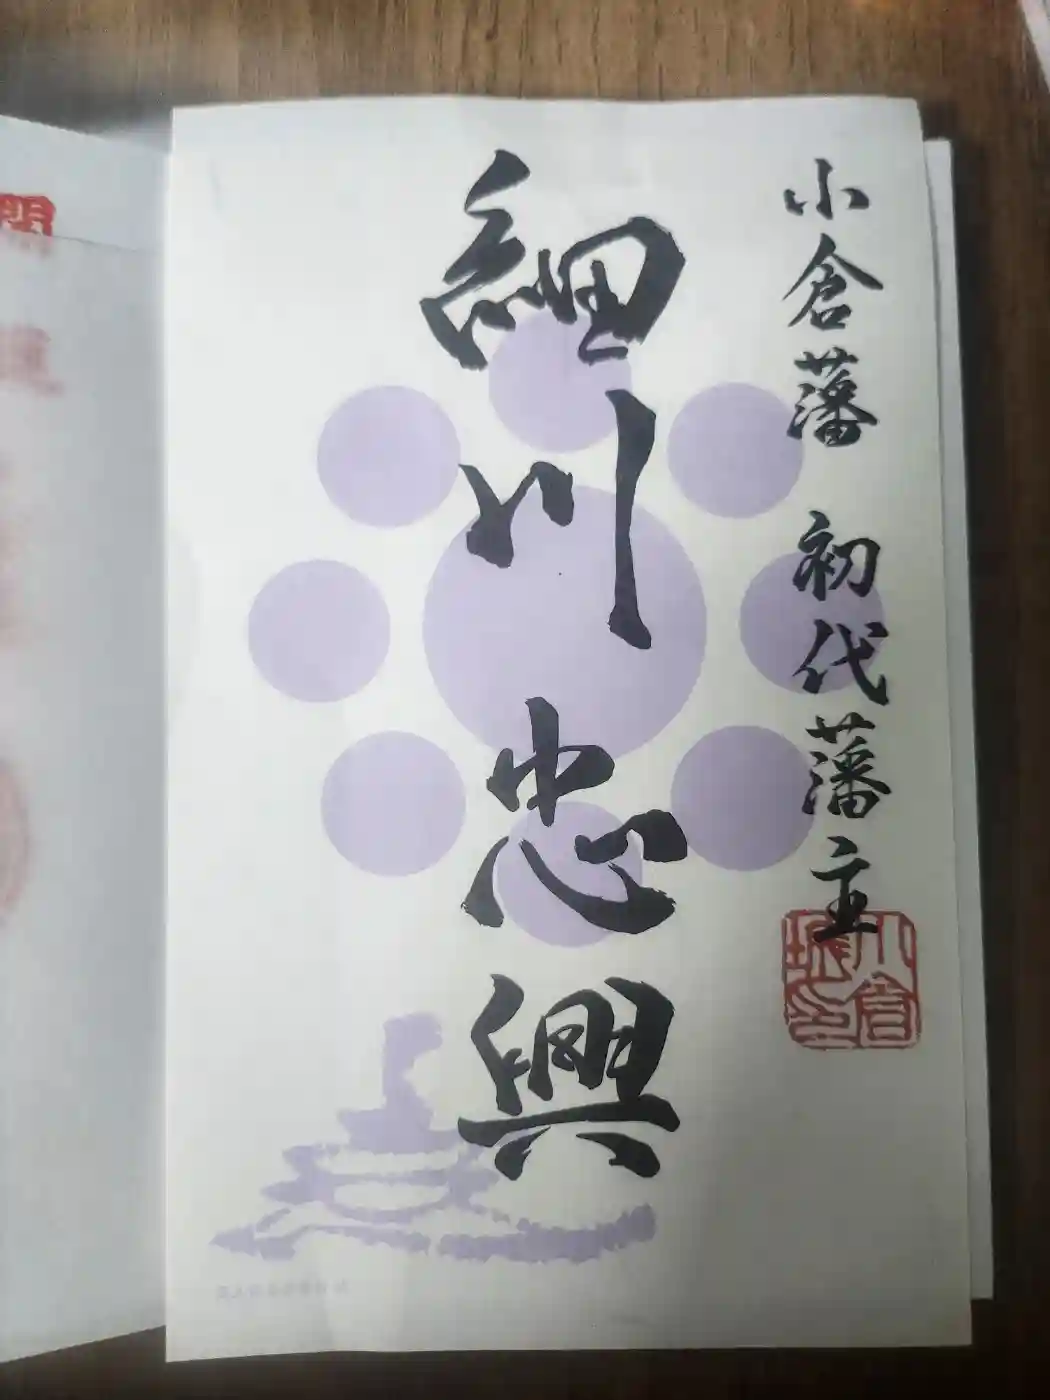 小倉藩 初代藩主
細川忠興
小倉
城印